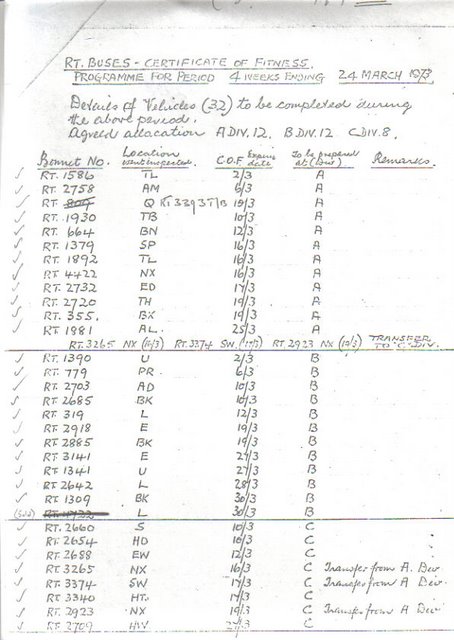 RT. BUSES - CERTIFICATE OF FITNESS.
PROGRAMME FOR PERIOD 4 WEEKS ENDING 24 MARCH 1973
Details of Vehicles (32) to be completed during
the above period.
Agreed allocation A DIV. 12. B DIV. 12 C DIV. 8.
Bonnet No. Location when inspected. C.O.F. Expire date To be prepared at (Divn) Remarks.
✓ RT. 1586 TL 2/3 A
✓ RT. 2758 AM 6/3 A
✓ RT. 809 Q RT 3393 T/B 10/3 A
✓ RT. 1930 TB 10/3 A
✓ RT. 664 BN 12/3 A
✓ RT. 1379 SP 16/3 A
✓ RT. 1892 TL 16/3 A
✓ RT. 4422 NX 16/3 A
✓ RT. 2732 ED 17/3 A
✓ RT. 2720 TH 19/3 A
✓ RT. 355. BX 19/3 A
✓ RT 1981 AL. 25/3 A
RT. 3265 NX (16/3) RT. 3374 SW. (17/3) RT. 2923 NX (19/3) TRANSFER TO 'C' DIV.
✓ RT. 1390 U 2/3 B
✓ RT. 779 PR. 6/3 B
✓ RT. 2703 AD 10/3 B
✓ RT. 2685 BK 10/3 B
✓ RT. 319 L 12/3 B
✓ RT. 2918 E 19/3 B
✓ RT. 2885 BK 19/3 B
✓ RT. 3141 E 27/3 B
✓ RT. 1341 U 27/3 B
✓ RT. 2642 L 28/3 B
✓ RT. 1309 BK 30/3 B
RT. L 30/3 B
✓ RT. 2660 S 10/3 C
✓ RT. 2654 HD 10/3 C
✓ RT. 2688 EW 12/3 C
✓ RT. 3265 NX 16/3 C Transfer from A. Div
✓ RT. 3374 SW 17/3 C Transfer from A Div.
✓ RT. 3340 HT. 17/3 C
✓ RT. 2923 NX 19/3 C Transfer from A Div
✓ RT. 2709 C